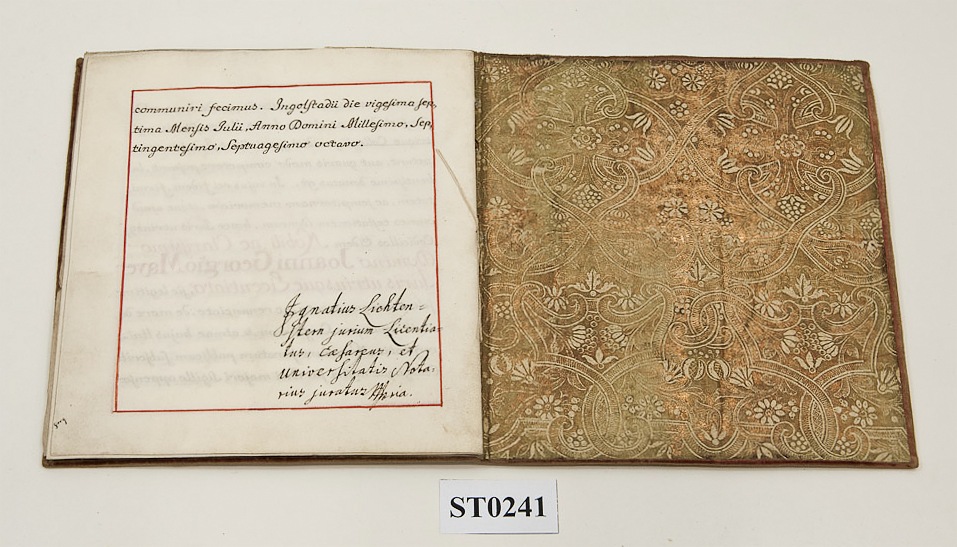 communiri fecimus. Ingolstadii die vigesima sep,
tima Mensis Julii, Anno Domini Millesimo, Sep,
tingentesimo, Septuagesimo octavo.
Joanni Georgio Mayr
Ignatius Lichten=
stern jurium Licentia
tus, cæsareus, et
universitatis Nota,
rius juratus
ST0241